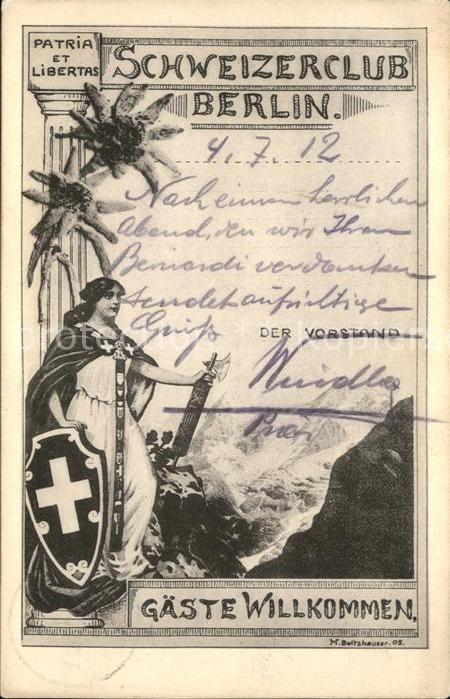 PATRIA
ET
LIBERTAS
SCHWEIZERCLUB
BERLIN.
4.7.12
Nach einem herrlichen
Abend, den wir Ihrem
Bernardi verdanken
sendet aufrichtige
Grüße
DER VORSTAND
GÄSTE WILLKOMMEN.
H. Boltzhauser. 05.